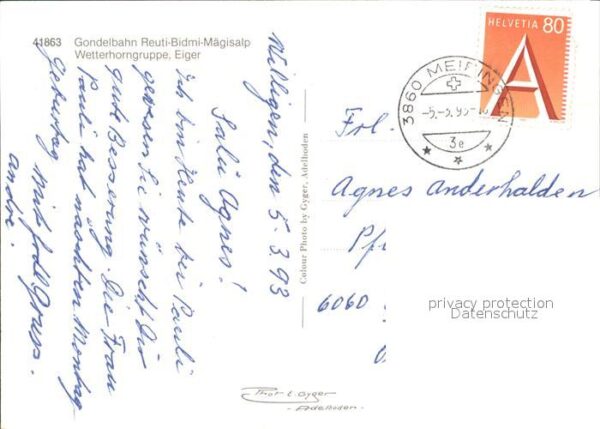 41863 Gondelbahn Reuti-Bidmi-Mägisalp
Wetterhorngruppe, Eiger
Willigen, den 5.3.93
Salü Agnes!
Ich bin Heute bei Pauli
gewesen Sie wünscht Dir
gute Besserung. Die Frau
Pauli hat nächsten Montag
Geburtstag mit frdl Gruss.
Colour Photo by Gyger, Adelboden
HELVETIA 80
A
3860 MEIRINGEN
-5.-3.93
3e
Frl.
Agnes Anderhalden
Pfr
6060
privacy protection
Datenschutz
Phot E. Gyger
- Adelboden.